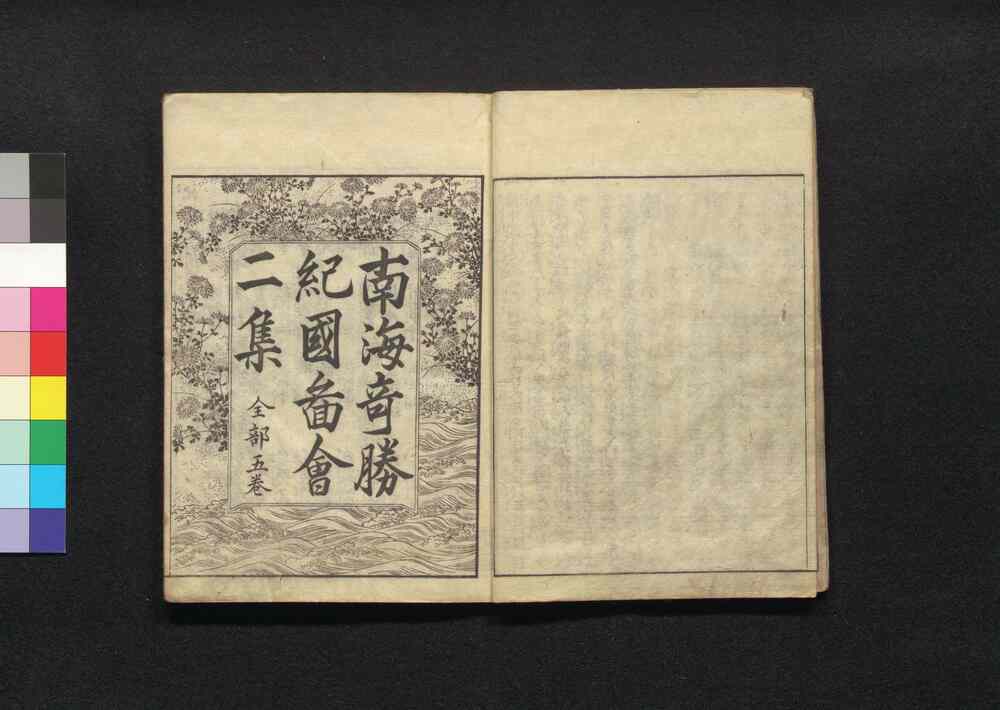 南海奇勝
紀國啚會
二集 全部五巻